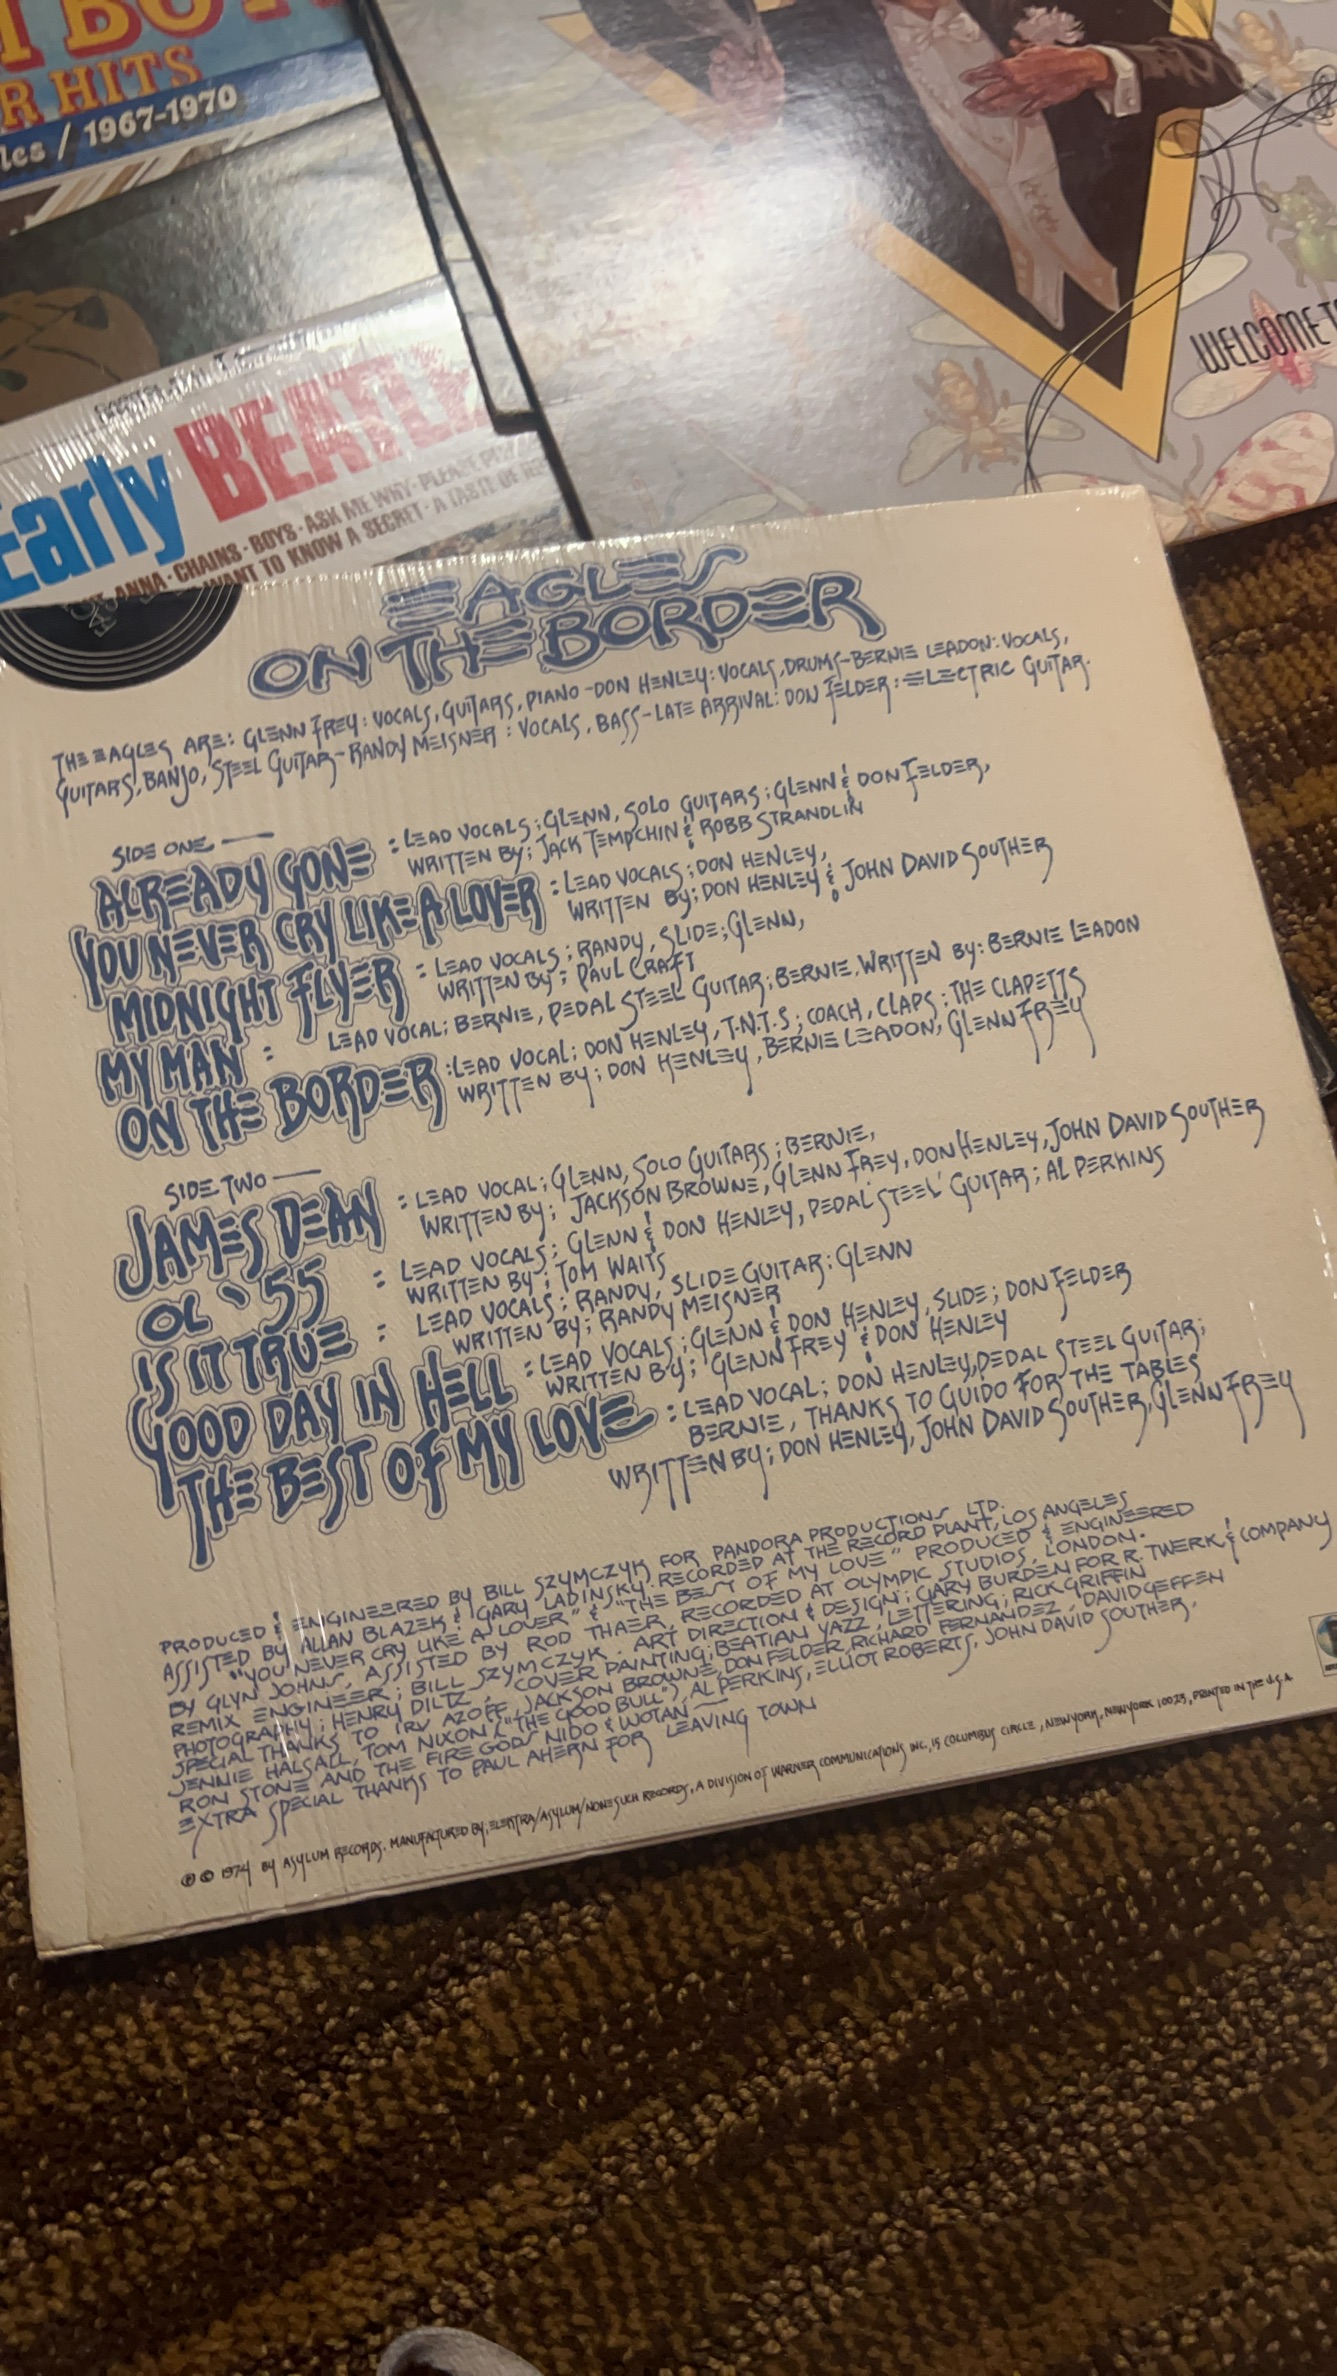 R HITS
les / 1967-1970
WELCOME
Early BEATL
ANNA · CHAINS · BOYS · ASK ME WHY · PLEASE
WANT TO KNOW A SECRET · A TASTE OF
EAGLES
ON THE BORDER
THE EAGLES ARE: GLENN FREY: VOCALS, GUITARS, PIANO - DON HENLEY: VOCALS, DRUMS - BERNIE LEADON: VOCALS,
GUITARS, BANJO, STEEL GUITAR - RANDY MEISNER: VOCALS, BASS - LATE ARRIVAL: DON FELDER: ELECTRIC GUITAR.
SIDE ONE —
ALREADY GONE : LEAD VOCALS; GLENN, SOLO GUITARS; GLENN & DON FELDER,
WRITTEN BY; JACK TEMPCHIN & ROBB STRANDLIN
YOU NEVER CRY LIKE A LOVER : LEAD VOCALS; DON HENLEY,
WRITTEN BY; DON HENLEY & JOHN DAVID SOUTHER
MIDNIGHT FLYER : LEAD VOCALS; RANDY, SLIDE; GLENN,
WRITTEN BY; PAUL CRAFT
MY MAN : LEAD VOCAL; BERNIE, PEDAL STEEL GUITAR; BERNIE, WRITTEN BY: BERNIE LEADON
ON THE BORDER : LEAD VOCAL; DON HENLEY, T.N.T.S; COACH, CLAPS; THE CLAPETTS
WRITTEN BY; DON HENLEY, BERNIE LEADON, GLENN FREY
SIDE TWO —
JAMES DEAN : LEAD VOCAL; GLENN, SOLO GUITARS; BERNIE,
WRITTEN BY; JACKSON BROWNE, GLENN FREY, DON HENLEY, JOHN DAVID SOUTHER
OL '55 : LEAD VOCALS; GLENN & DON HENLEY, PEDAL STEEL GUITAR; AL PERKINS
WRITTEN BY; TOM WAITS
IS IT TRUE : LEAD VOCALS; RANDY, SLIDE GUITAR; GLENN
WRITTEN BY; RANDY MEISNER
GOOD DAY IN HELL : LEAD VOCALS; GLENN & DON HENLEY, SLIDE; DON FELDER
WRITTEN BY; GLENN FREY & DON HENLEY
THE BEST OF MY LOVE : LEAD VOCAL; DON HENLEY, PEDAL STEEL GUITAR;
BERNIE, THANKS TO GUIDO FOR THE TABLES
WRITTEN BY; DON HENLEY, JOHN DAVID SOUTHER, GLENN FREY
PRODUCED & ENGINEERED BY BILL SZYMCZYK FOR PANDORA PRODUCTIONS LTD.
ASSISTED BY ALLAN BLAZEK & GARY LADINSKY. RECORDED AT THE RECORD PLANT, LOS ANGELES
"YOU NEVER CRY LIKE A LOVER" & "THE BEST OF MY LOVE" PRODUCED & ENGINEERED
BY GLYN JOHNS, ASSISTED BY ROD THAER, RECORDED AT OLYMPIC STUDIOS, LONDON.
REMIX ENGINEER; BILL SZYMCZYK. ART DIRECTION & DESIGN; GARY BURDEN FOR R. TWERK & COMPANY
PHOTOGRAPHY; HENRY DILTZ, COVER PAINTING; BEATIAN YAZZ, LETTERING; RICK GRIFFIN
SPECIAL THANKS TO IRV AZOFF, JACKSON BROWNE, DON FELDER, RICHARD FERNANDEZ, DAVID GEFFEN
JENNIE HALSALL, TOM NIXON ("THE GOOD BULL"), AL PERKINS, ELLIOT ROBERTS, JOHN DAVID SOUTHER,
RON STONE AND THE FIRE GODS NIDO & WOTAN —
EXTRA SPECIAL THANKS TO PAUL AHERN FOR LEAVING TOWN
℗ © 1974 BY ASYLUM RECORDS. MANUFACTURED BY, ELEKTRA/ASYLUM/NONESUCH RECORDS, A DIVISION OF WARNER COMMUNICATIONS INC., 15 COLUMBUS CIRCLE, NEW YORK, NEW YORK 10023, PRINTED IN THE U.S.A.